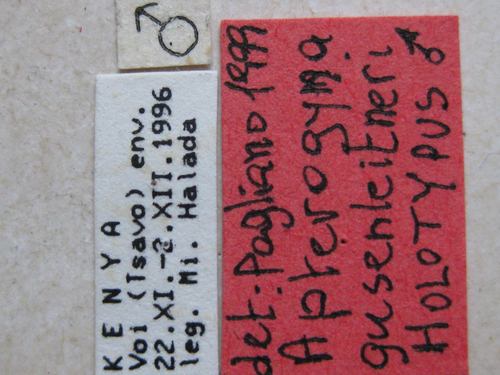 ♂
KENYA
Voi (Tsavo) env.
22.XI.-2.XII.1996
leg. Mi. Halada
det: Pagliano 1999
Apterogyna
gusenleitneri
HOLOTYPUS ♂